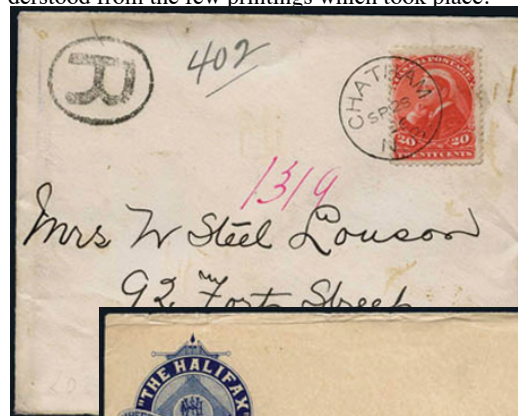 derstood from the few printings which took place.
R
402
CHATHAM
SP 26
N
POSTAGE
20 20
TWENTY CENTS
1319
Mrs W Steel Louson
92 Fort Street
"THE HALIFAX"